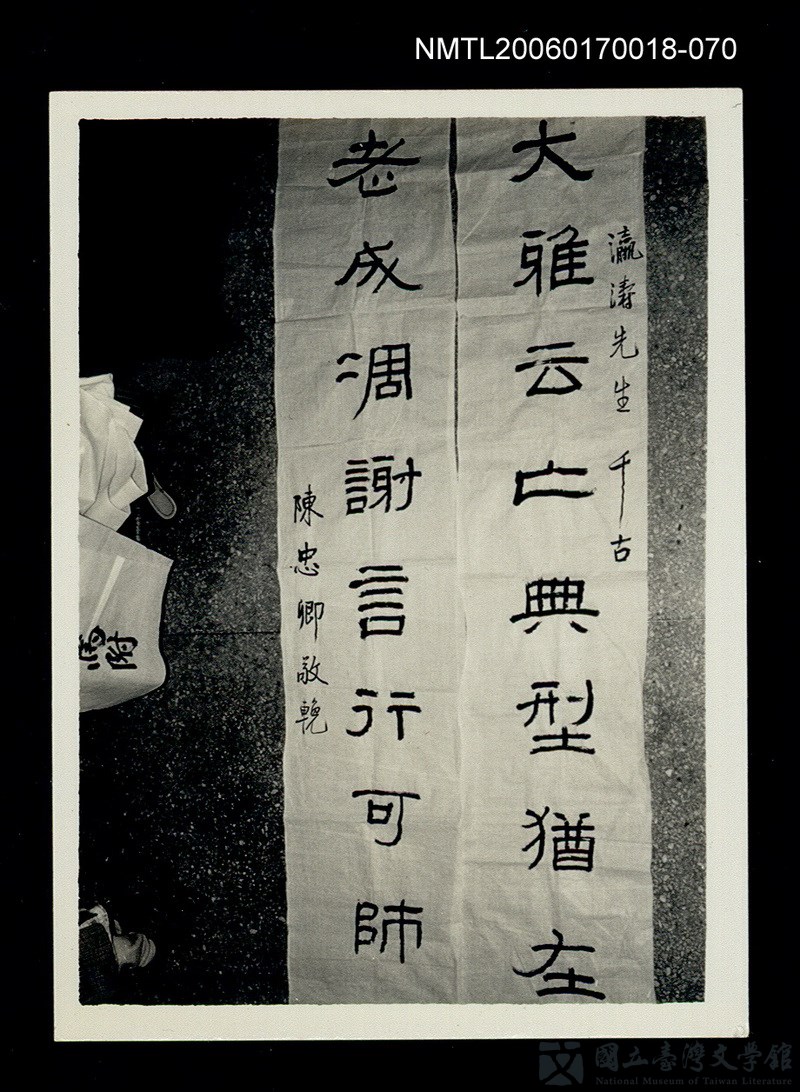 NMTL20060170018-070
瀛濤先生 千古
大雅云亡典型猶在
老成凋謝言行可師
陳忠卿敬輓
國立臺灣文學館
National Museum of Taiwan Literature